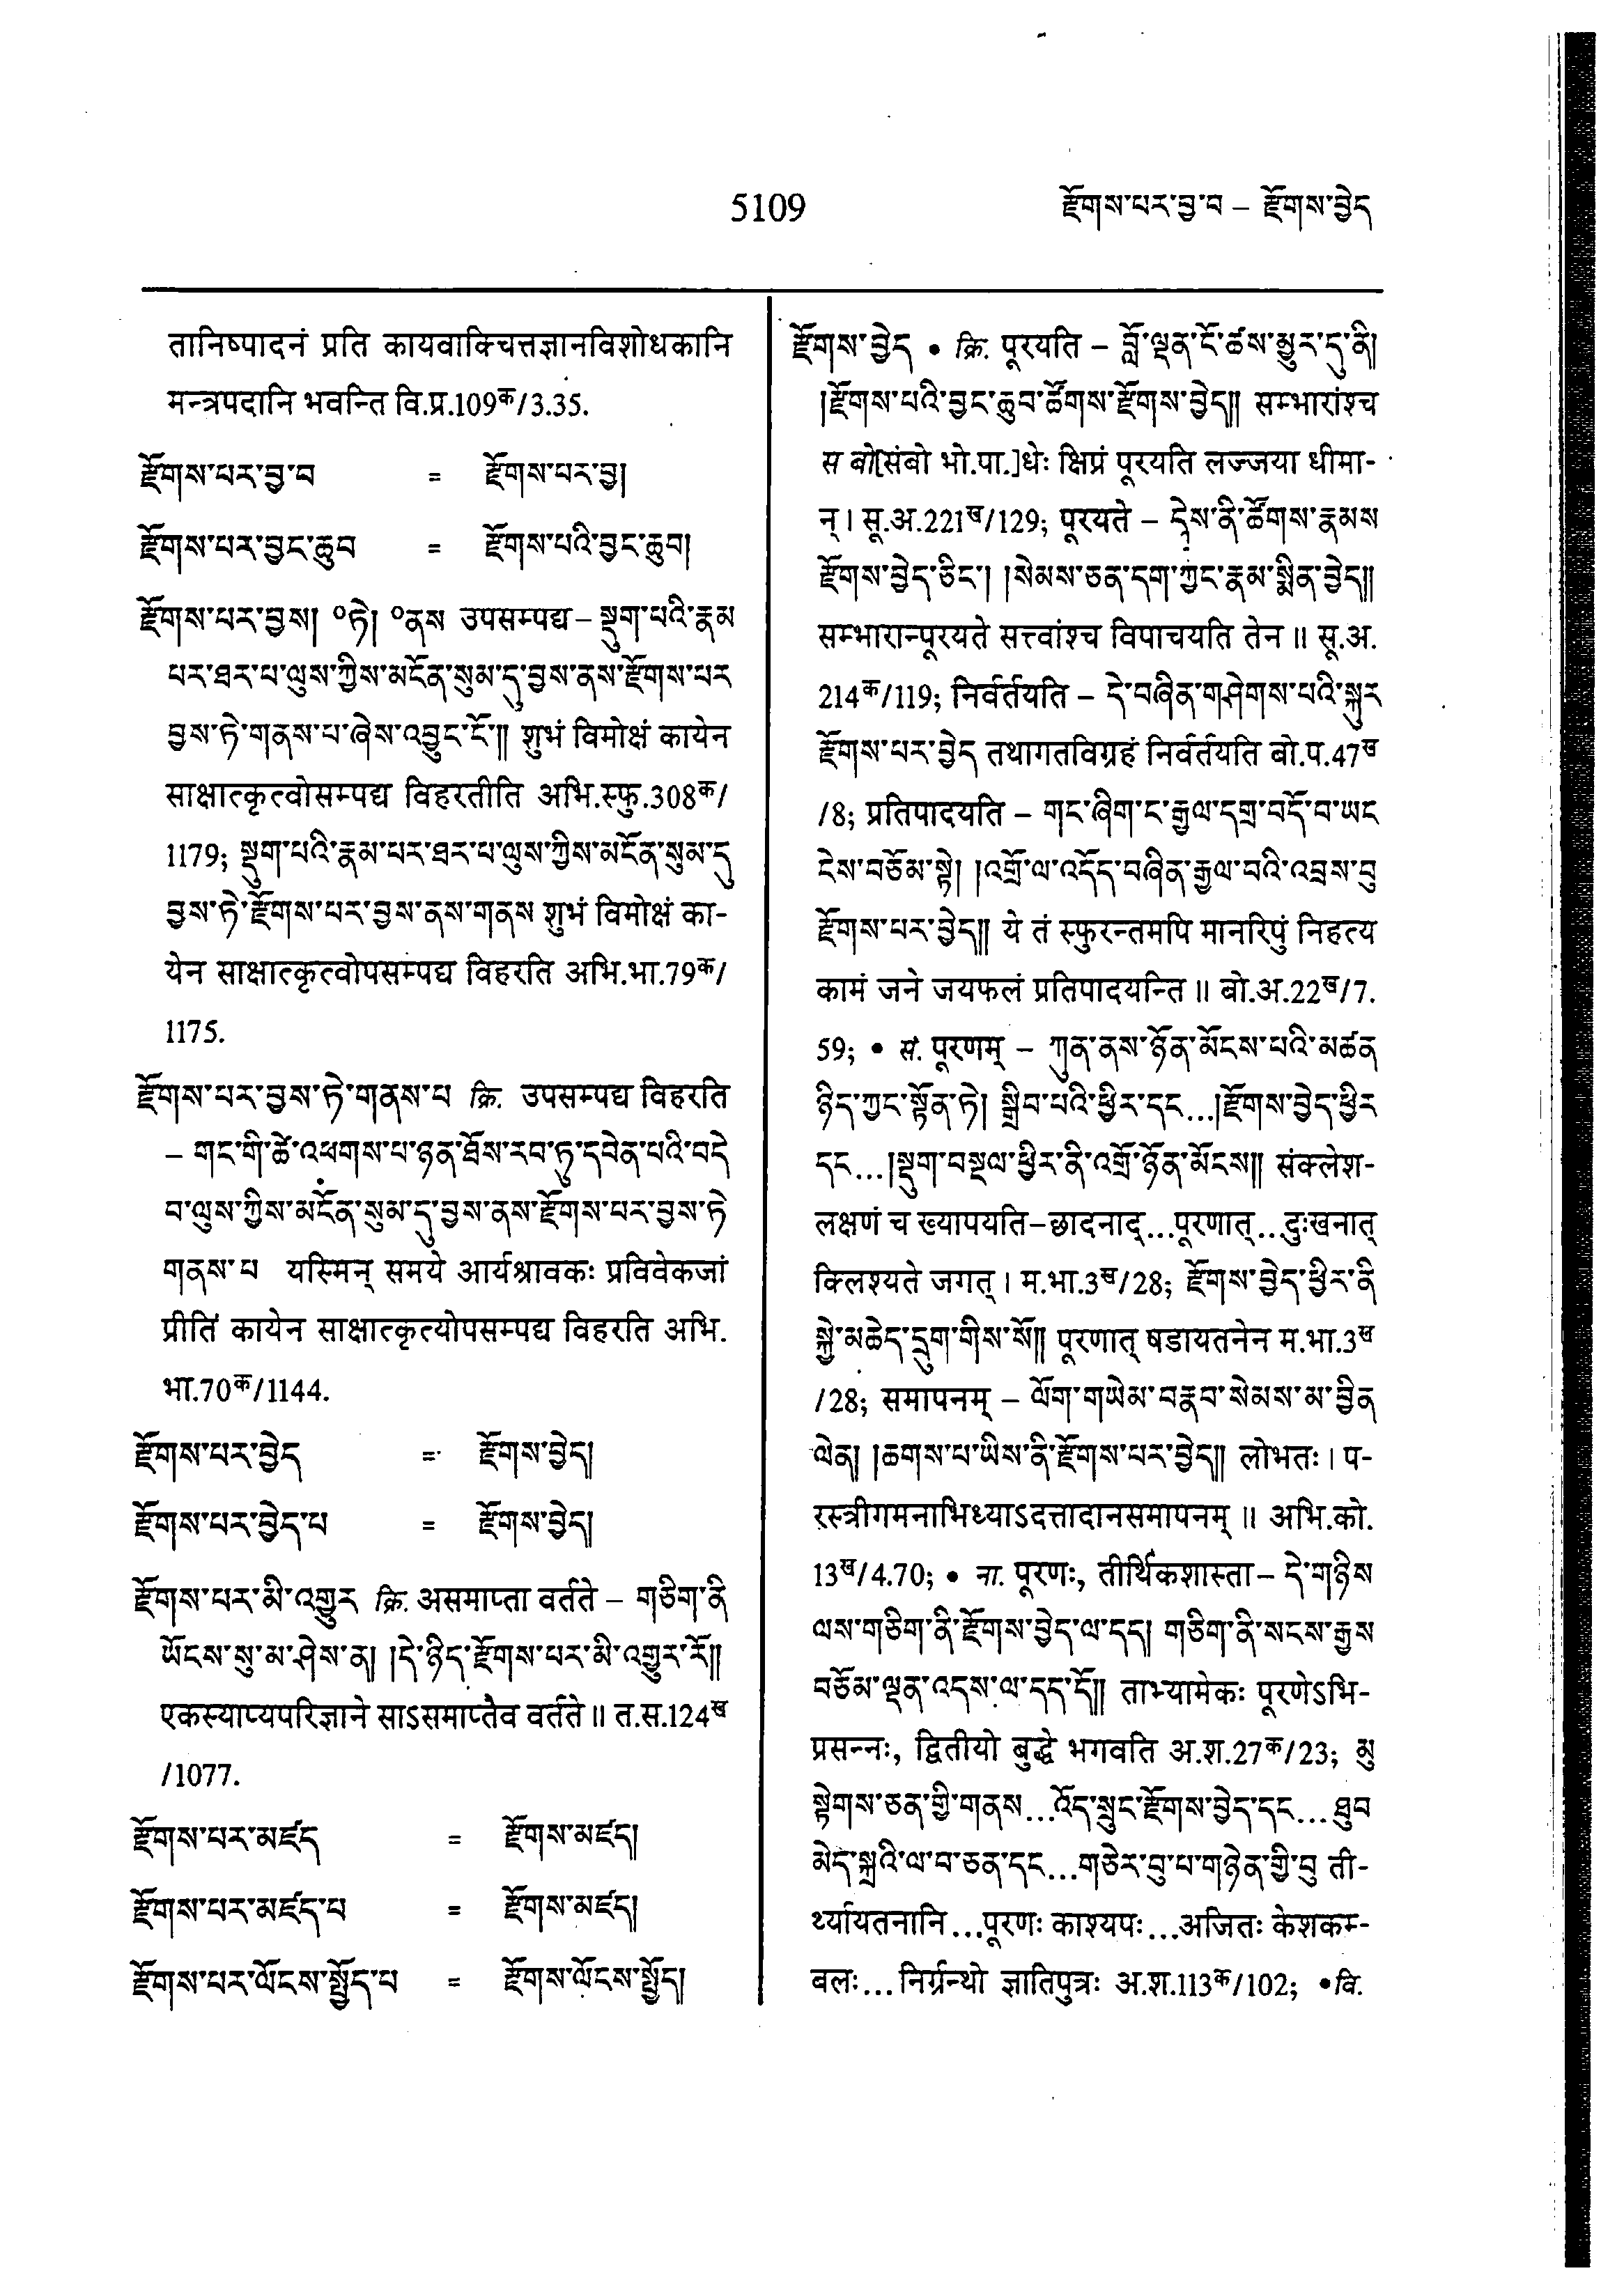 5109
རྫོགས་པར་བྱ་བ – རྫོགས་བྱེད
तानिष्पादनं प्रति कायवाक्चित्तज्ञानविशोधकानि
मन्त्रपदानि भवन्ति वि.प्र.109क/3.35.
རྫོགས་པར་བྱ་བ = རྫོགས་པར་བྱ།
རྫོགས་པར་བྱང་ཆུབ = རྫོགས་པའི་བྱང་ཆུབ།
རྫོགས་པར་བྱས། ༠ཏེ། ༠ནས उपसम्पद्य – སྡུག་པའི་རྣམ
པར་ཐར་པ་ལུས་ཀྱིས་མངོན་སུམ་དུ་བྱས་ནས་རྫོགས་པར
བྱས་ཏེ་གནས་པ་ཞེས་འབྱུང་ངོ་༎ शुभं विमोक्षं कायेन
साक्षात्कृत्वोसम्पद्य विहरतीति अभि.स्फु.308क/
1179; སྡུག་པའི་རྣམ་པར་ཐར་པ་ལུས་ཀྱིས་མངོན་སུམ་དུ
བྱས་ཏེ་རྫོགས་པར་བྱས་ནས་གནས शुभं विमोक्षं का-
येन साक्षात्कृत्वोपसम्पद्य विहरति अभि.भा.79क/
1175.
རྫོགས་པར་བྱས་ཏེ་གནས་པ क्रि. उपसम्पद्य विहरति
– གང་གི་ཚེ་འཕགས་པ་ཉན་ཐོས་རབ་ཏུ་དབེན་པའི་བདེ
བ་ལུས་ཀྱིས་མངོན་སུམ་དུ་བྱས་ནས་རྫོགས་པར་བྱས་ཏེ
གནས་པ यस्मिन् समये आर्यश्रावकः प्रविवेकजां
प्रीतिं कायेन साक्षात्कृत्योपसम्पद्य विहरति अभि.
भा.70क/1144.
རྫོགས་པར་བྱེད = རྫོགས་བྱེད།
རྫོགས་པར་བྱེད་པ = རྫོགས་བྱེད།
རྫོགས་པར་མི་འགྱུར क्रि. असमाप्ता वर्तते – གཅིག་ནི
ཡོངས་སུ་མ་ཤེས་ན། །དེ་ཉིད་རྫོགས་པར་མི་འགྱུར་རོ༎
एकस्याप्यपरिज्ञाने साऽसमाप्तैव वर्तते॥ त.स.124ख
/1077.
རྫོགས་པར་མཛད = རྫོགས་མཛད།
རྫོགས་པར་མཛད་པ = རྫོགས་མཛད།
རྫོགས་པར་ལོངས་སྤྱོད་པ = རྫོགས་ལོངས་སྤྱོད།
རྫོགས་བྱེད • क्रि. पूरयति – བློ་ལྡན་ངོ་ཚས་མྱུར་དུ་ནི།
།རྫོགས་པའི་བྱང་ཆུབ་ཚོགས་རྫོགས་བྱེད༎ सम्भारांश्च
स बो[संबो भो.पा.]धेः क्षिप्रं पूरयति लज्जया धीमा-
न्। सू.अ.221ख/129; पूरयते – དེས་ནི་ཚོགས་རྣམས
རྫོགས་བྱེད་ཅིང་། །སེམས་ཅན་དག་ཀྱང་རྣམ་སྨིན་བྱེད༎
सम्भारान्पूरयते सत्त्वांश्च विपाचयति तेन॥ सू.अ.
214क/119; निर्वर्तयति – དེ་བཞིན་གཤེགས་པའི་སྐུར
རྫོགས་པར་བྱེད तथागतविग्रहं निर्वर्तयति बो.प.47ख
/8; प्रतिपादयति – གང་ཞིག་ང་རྒྱལ་དགྲ་བདོ་བ་ཡང
ངེས་བཅོམ་སྟེ། །འགྲོ་ལ་འདོད་བཞིན་རྒྱལ་བའི་འབྲས་བུ
རྫོགས་པར་བྱེད༎ ये तं स्फुरन्तमपि मानरिपुं निहत्य
कामं जने जयफलं प्रतिपादयन्ति॥ बो.अ.22ख/7.
59; • सं. पूरणम् – ཀུན་ནས་ཉོན་མོངས་པའི་མཚན
ཉིད་ཀྱང་སྟོན་ཏེ། སྒྲིབ་པའི་ཕྱིར་དང...།རྫོགས་བྱེད་ཕྱིར
དང...།སྡུག་བསྔལ་ཕྱིར་ནི་འགྲོ་ཉོན་མོངས༎ संक्लेश-
लक्षणं च ख्यापयति–छादनाद्...पूरणात्...दुःखनात्
क्लिश्यते जगत्। म.भा.3ख/28; རྫོགས་བྱེད་ཕྱིར་ནི
སྐྱེ་མཆེད་དྲུག་གིས་སོ༎ पूरणात् षडायतनेन म.भा.3ख
/28; समापनम् – ལོག་གཡེམ་བརྣབ་སེམས་མ་བྱིན
ལེན། །ཆགས་པ་ཡིས་ནི་རྫོགས་པར་བྱེད༎ लोभतः। प-
रस्त्रीगमनाभिध्याऽदत्तादानसमापनम्॥ अभि.को.
13ख/4.70; • ना. पूरणः, तीर्थिकशास्ता – དེ་གཉིས
ལས་གཅིག་ནི་རྫོགས་བྱེད་ལ་དད། གཅིག་ནི་སངས་རྒྱས
བཅོམ་ལྡན་འདས་ལ་དད་དོ༎ ताभ्यामेकः पूरणेऽभि-
प्रसन्नः, द्वितीयो बुद्धे भगवति अ.श.27क/23; མུ
སྟེགས་ཅན་གྱི་གནས...འོད་སྲུང་རྫོགས་བྱེད་དང...ཐུབ
མེད་སྐྲའི་ལ་བ་ཅན་དང...གཅེར་བུ་པ་གཉེན་གྱི་བུ ती-
र्थ्यायतनानि...पूरणः काश्यपः...अजितः केशकम्-
बलः...निर्ग्रन्थो ज्ञातिपुत्रः अ.श.113क/102; •वि.